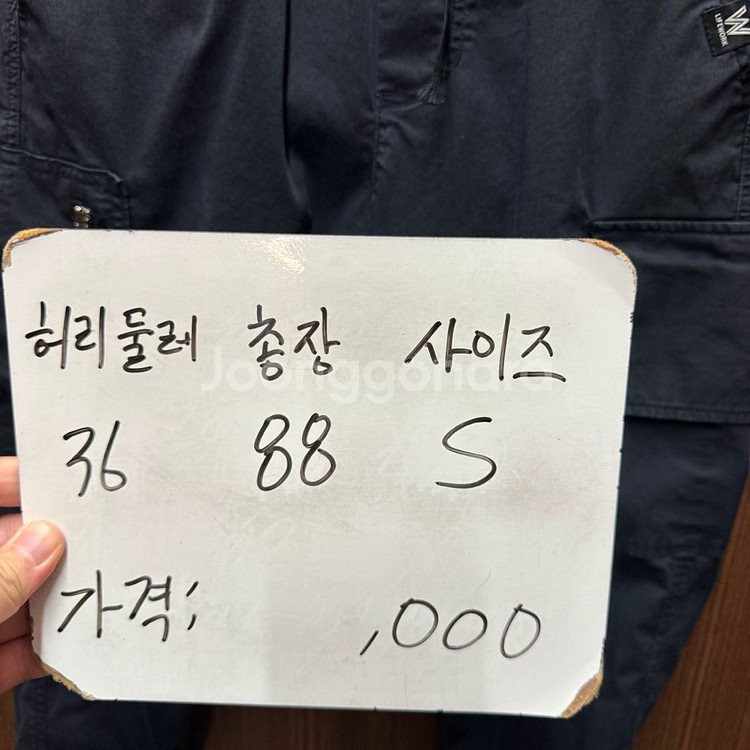 W
LIFEWORK
허리둘레 총장 사이즈
36 88 S
가격; ,000
Joonggonara